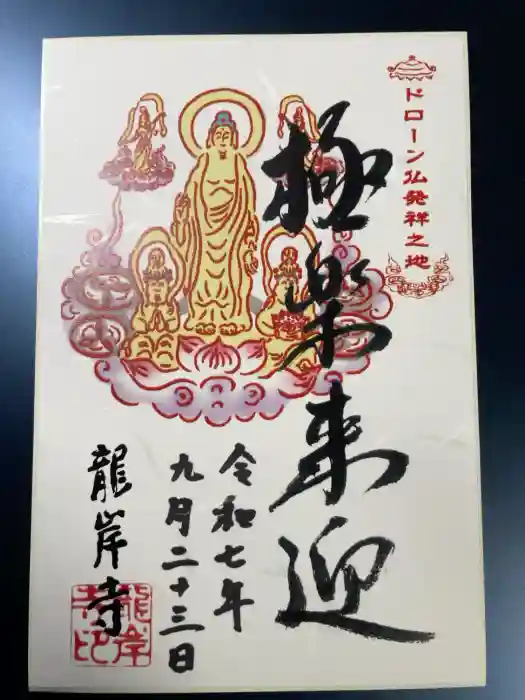 ドローン仏発祥之地
極楽来迎
令和七年
九月二十三日
龍岸寺
龍岸
寺印